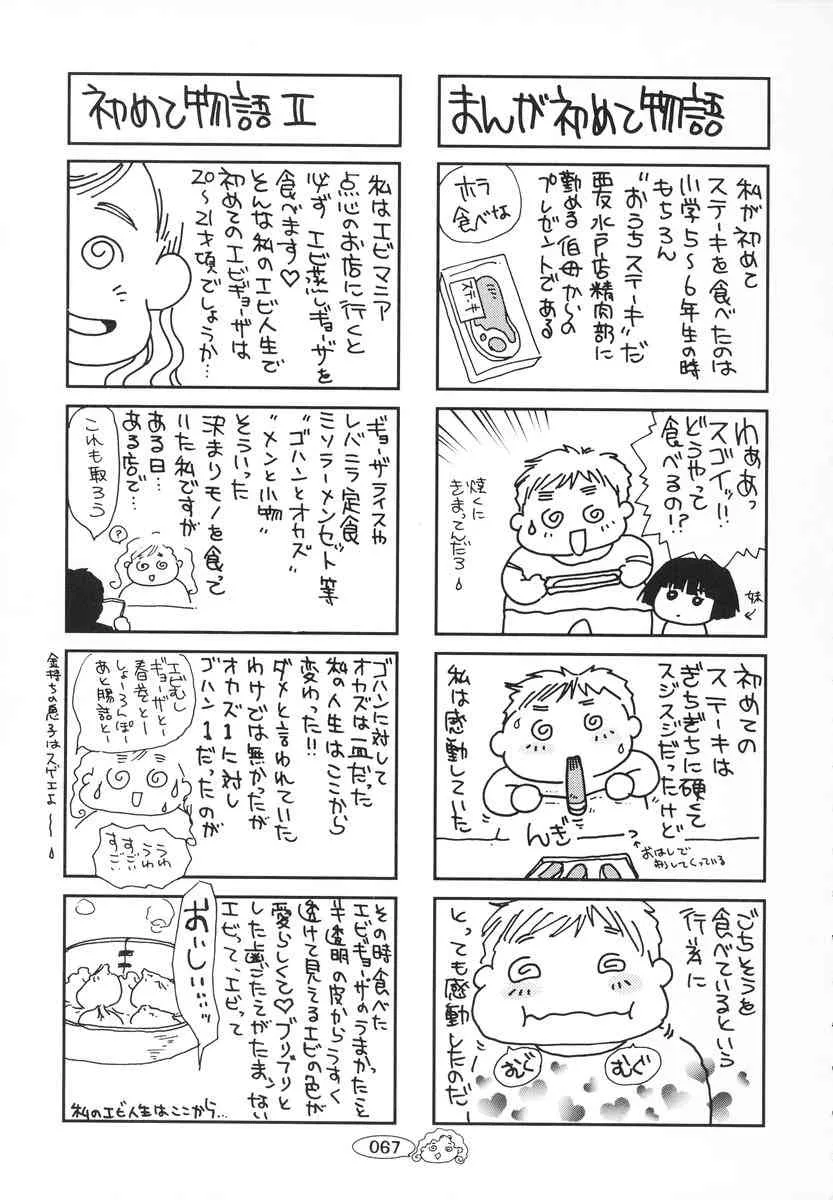 まんが初めて物語
私が初めて
ステーキを食べたのは
小学5〜6年生の時
もちろん
"おうちステーキ"だ
西友水戸店精肉部に
勤める伯母からの
プレゼントである
ホラ
食べな
ステーキ
わぁあっ
スゴイッ!!
どうやって
食べるの!?
焼くに
きまってんだろ
妹
初めての
ステーキは
ぎちぎちに硬くて
スジスジだったけど
私は感動していた
んぎ
おはしで
刺してくっている
ごちそうを
食べているという
行為に
とっても感動したのだ
むぐ
むぐ
初めて物語Ⅱ
私はエビマニア
点心のお店に行くと
必ずエビ蒸しギョーザを
食べます♡
そんな私のエビ人生で
初めてのエビギョーザは
20〜21才頃でしょうか…
ギョーザライスや
レバニラ定食
ミソラーメンセット等
"ゴハンとオカズ"
"メンと小物"
そういった
決まりモノを食って
いた私ですが
ある日…
ある店で…
これも取ろう
?
ゴハンに対して
オカズは一皿だった
私の人生はここから
変わった!!
ダメと言われていた
わけでは無かったが
オカズ1に対し
ゴハン1だったのが
エビむし
ギョーザとー
春巻とー
しょーろんぽー
あと腸詰とー
うわ
うわ
すごい
すごい
金持ちの息子はスゲエよ〜
その時食べた
エビギョーザのうまかったこと
半透明の皮からうすく
透けて見えるエビの色が
愛らしくて♡プリプリと
した歯ごたえがたまんない
エビって、エビって
おいしい…
私のエビ人生はここから…
067